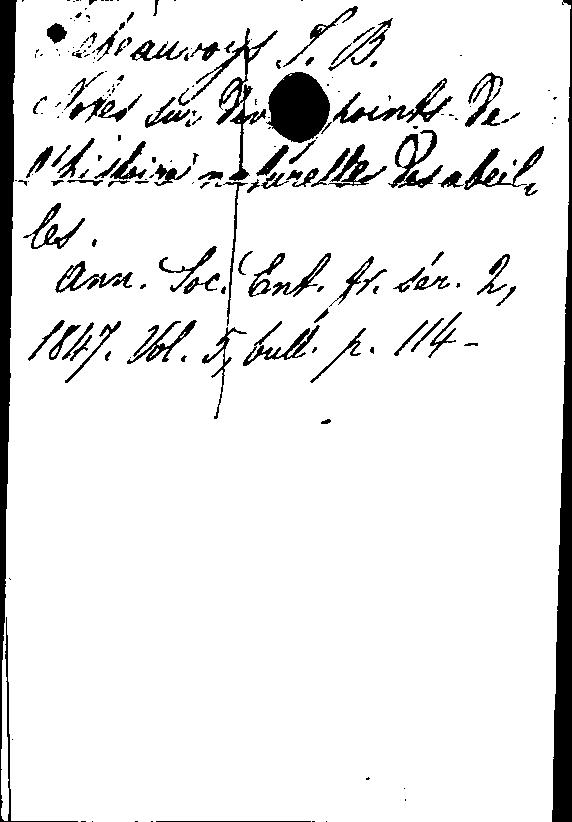 Debeauvoys T. B.
Notes sur div points de
l'histoire naturelles des abeil-
les.
Ann. Soc. Ent. fr. sér. 2,
1847. Vol. 5, bull. p. 114-